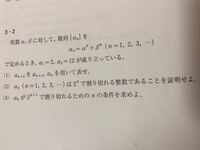 3・2
実数α, βに対して, 数列 {aₙ} を
aₙ = αⁿ + βⁿ (n = 1, 2, 3, …)
で定めるとき, a₁ = 2, a₃ = 12 が成り立っている.
(1) aₙ₊₂ を aₙ₊₁, aₙ を用いて表せ.
(2) aₙ (n = 1, 2, 3, …) は 2ⁿ で割り切れる整数であることを証明せよ.
(3) aₙ が 2ⁿ⁺¹ で割り切れるための n の条件を求めよ.